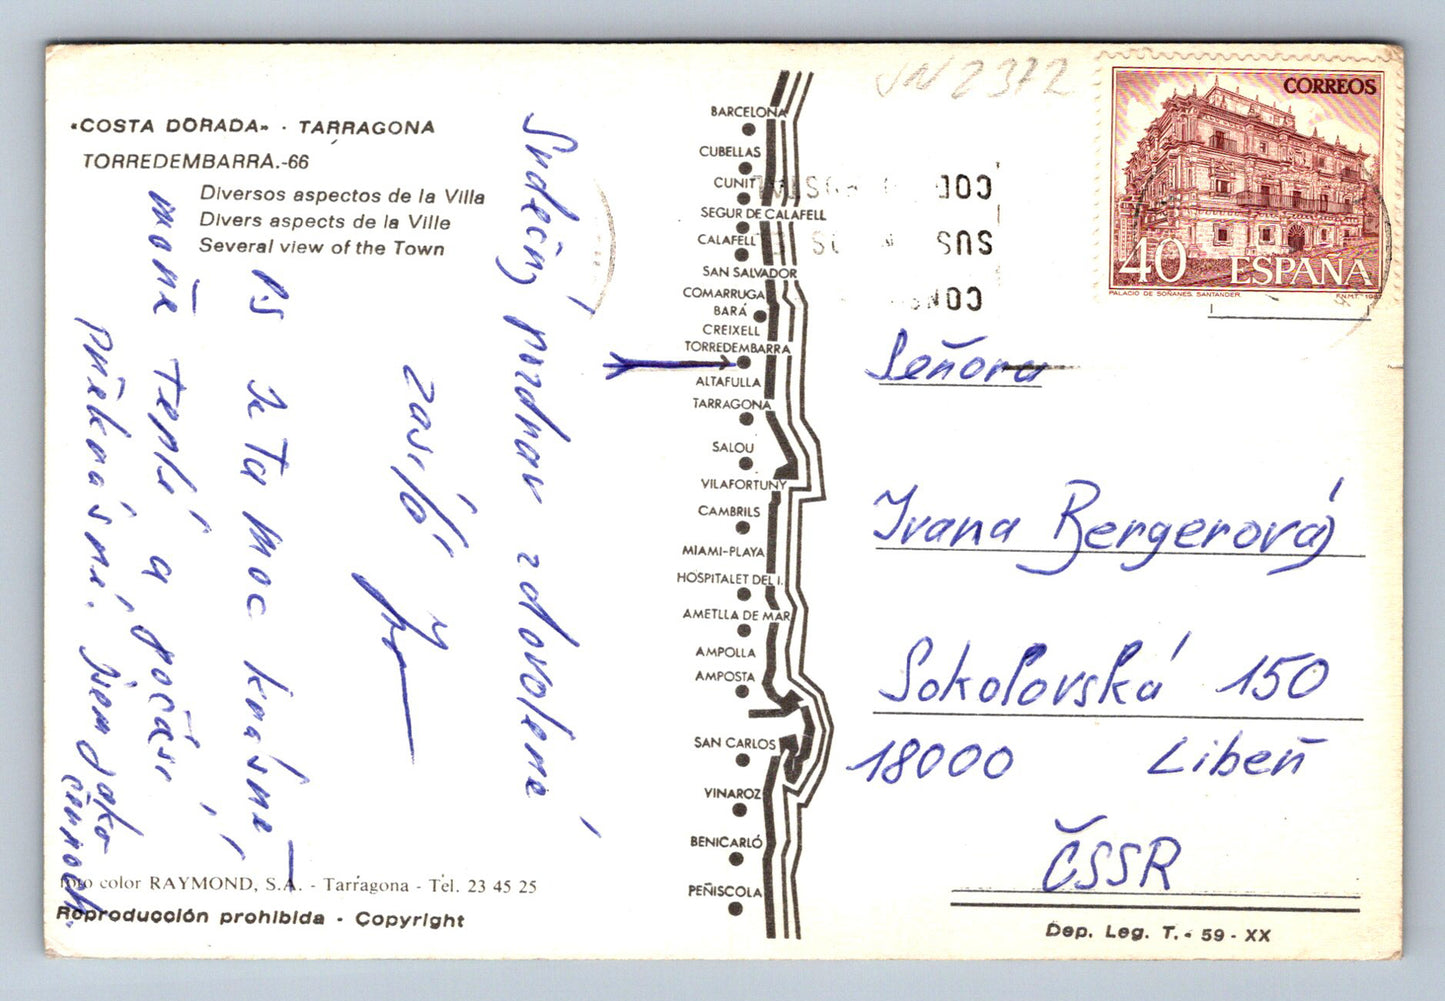 «COSTA DORADA» · TARRAGONA
TORREDEMBARRA.-66
Diversos aspectos de la Villa
Divers aspects de la Ville
Several view of the Town
Srdečný pozdrav z dovolené
zasílá
PS Je ta moc krásně
moře teplé a počasí
překrásné. Jsem jako
černoch.
foto color RAYMOND, S.A. - Tarragona - Tel. 23 45 25
Reproducción prohibida - Copyright
BARCELONA
CUBELLAS
CUNIT
SEGUR DE CALAFELL
CALAFELL
SAN SALVADOR
COMARRUGA
BARÁ
CREIXELL
TORREDEMBARRA
ALTAFULLA
TARRAGONA
SALOU
VILAFORTUNY
CAMBRILS
MIAMI-PLAYA
HOSPITALET DEL I.
AMETLLA DE MAR
AMPOLLA
AMPOSTA
SAN CARLOS
VINAROZ
BENICARLÓ
PEÑISCOLA
VN2372
CORREOS
40 ESPAÑA
PALACIO DE SOÑANES. SANTANDER. F.N.M.T.
Señora
Ivana Bergerová
Sokolovská 150
18000 Libeň
ČSSR
Dep. Leg. T. - 59 - XX